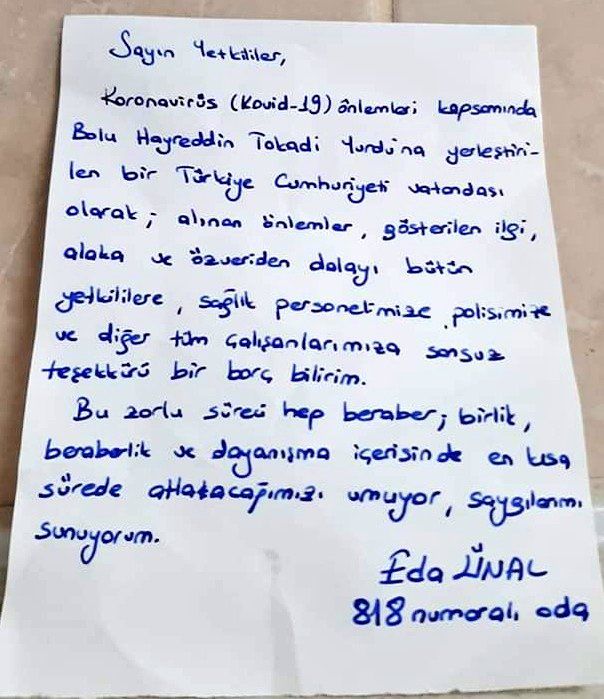 Sayın Yetkililer,
Koronavirüs (Kovid-19) önlemleri kapsamında
Bolu Hayreddin Tokadi Yurdu'na yerleştiri-
len bir Türkiye Cumhuriyeti vatandaşı
olarak; alınan önlemler, gösterilen ilgi,
alaka ve özveriden dolayı bütün
yetkililere, sağlık personelimize, polisimize
ve diğer tüm çalışanlarımıza sonsuz
teşekkürü bir borç bilirim.
Bu zorlu süreci hep beraber; birlik,
beraberlik ve dayanışma içerisinde en kısa
sürede atlatacağımızı umuyor, saygılarımı
sunuyorum.
Eda ÜNAL
818 numaralı oda